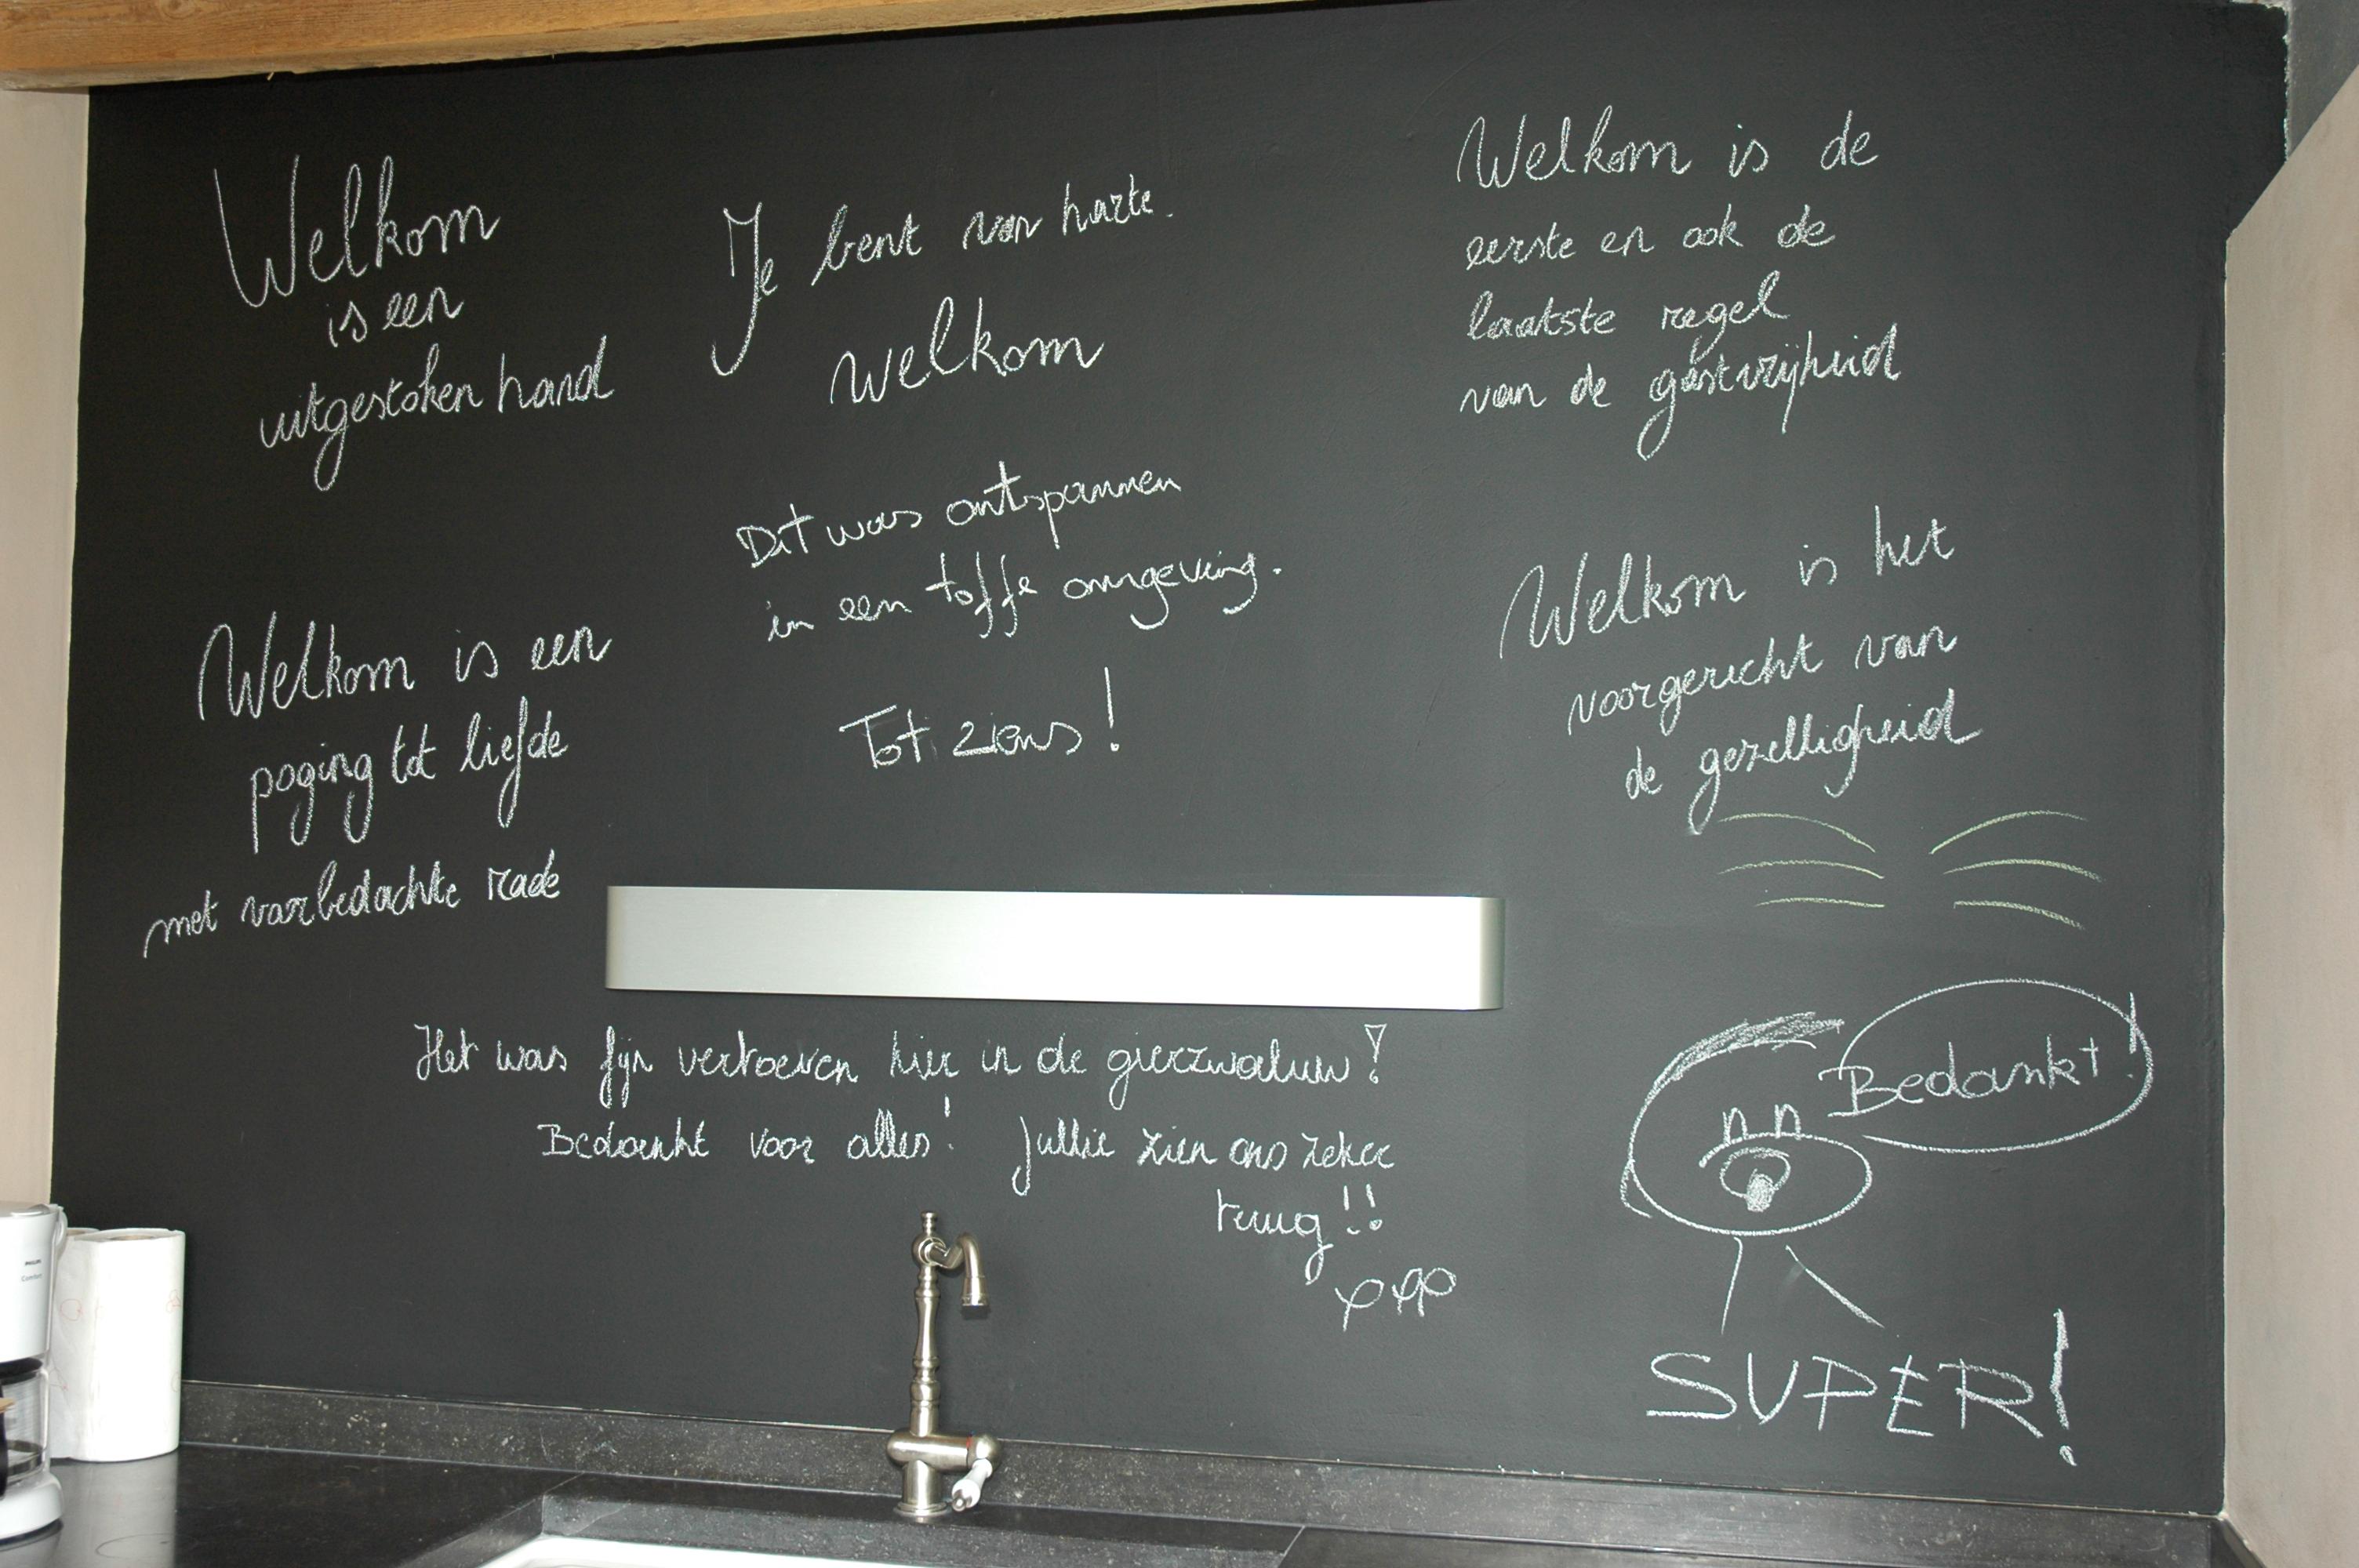 Welkom
is een
uitgestoken hand
Je bent van harte
welkom
Welkom is de
eerste en ook de
laatste regel
van de gastvrijheid
Dit was ontspannen
in een toffe omgeving.
Tot ziens!
Welkom is het
voorgerecht van
de gezelligheid
Welkom is een
poging tot liefde
met voorbedachte rade
Het was fijn vertoeven hier in de gierzwaluw!
Bedankt voor alles! Jullie zien ons zeker
terug!!
Bedankt!
SUPER!
PHILIPS
Comfort